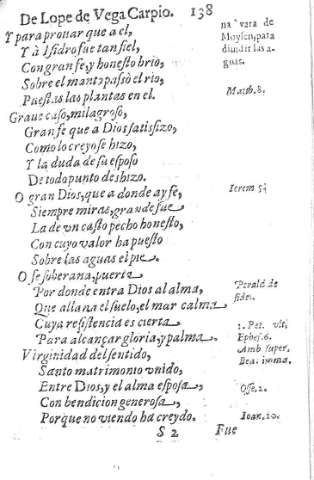 De Lope de Vega Carpio. 138
Y para prouar que a el,
Y à Isidro fue tan fiel,
Con gran fe, y honesto brio,
Sobre el manto passò el rio,
Puestas las plantas en el.
Graue caso, milagroso,
Gran fe que a Dios satisizo,
Como lo creyo se hizo,
Y la duda de su esposo
De todo punto deshizo.
O gran Dios, que a donde ay fe,
Siempre miras, grande fue
La de vn casto pecho honesto,
Con cuyo valor ha puesto
Sobre las aguas el pie.
O fe soberana, puerta
Por donde entra Dios al alma,
Que allana el suelo, el mar calma
Cuya resistencia es cierta
Para alcançar gloria, y palma.
Virginidad del sentido,
Santo matrimonio vnido,
Entre Dios, y el alma esposa,
Con bendicion generosa,
Porque no viendo ha creydo.
S 2 Fue
na vara de
Moysen, para
diuidir las a-
guas.
Matth. 8.
Ierem 5.
de
fide.
1. Pet. vlt.
Ephes. 6.
Amb super.
Osse. 2.
Ioan. 20.